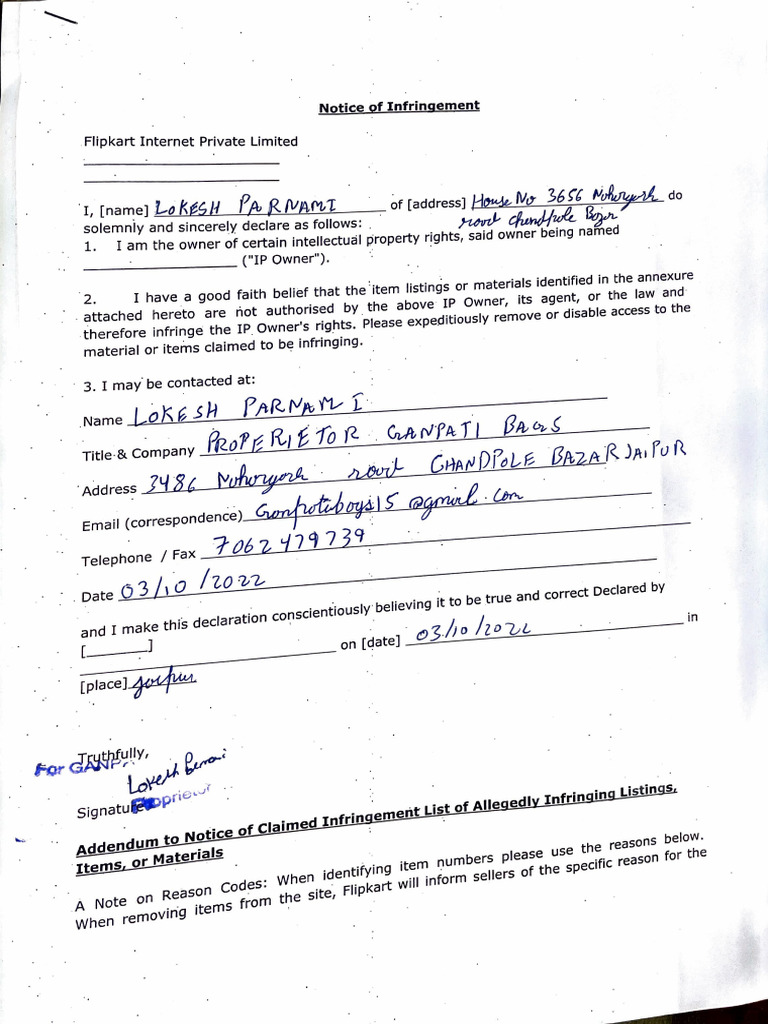 Notice of Infringement
Flipkart Internet Private Limited
I, [name] LOKESH PARNAMI of [address] House No 3656 do
solemnly and sincerely declare as follows:
1. I am the owner of certain intellectual property rights, said owner being named
("IP Owner").
2. I have a good faith belief that the item listings or materials identified in the annexure
attached hereto are not authorised by the above IP Owner, its agent, or the law and
therefore infringe the IP Owner's rights. Please expeditiously remove or disable access to the
material or items claimed to be infringing.
3. I may be contacted at:
Name LOKESH PARNAMI
Title & Company PROPERIETOR GANPATI BAGS
Address 3486 CHANDPOLE BAZAR JAIPUR
Email (correspondence) @gmail.com
Telephone / Fax 7062479739
Date 03/10/2022
and I make this declaration conscientiously believing it to be true and correct Declared by
[________]
on [date] 03/10/2022 in
[place] Jaipur
Truthfully,
For GANP
Lokesh
Signature Proprietor
Addendum to Notice of Claimed Infringement List of Allegedly Infringing Listings,
Items, or Materials
A Note on Reason Codes: When identifying item numbers please use the reasons below.
When removing items from the site, Flipkart will inform sellers of the specific reason for the